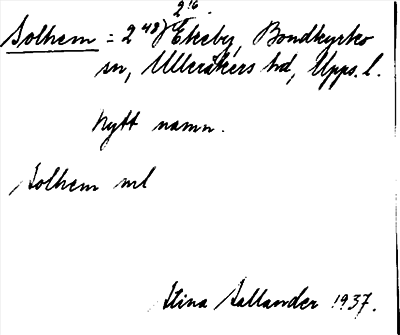 2¹⁶
Solhem = 2⁴⁸) Ekeby, Bondkyrko
sn, Ulleråkers hd, Upps. l.
Nytt namn.
Solhem ml
Stina Sallander 1937.